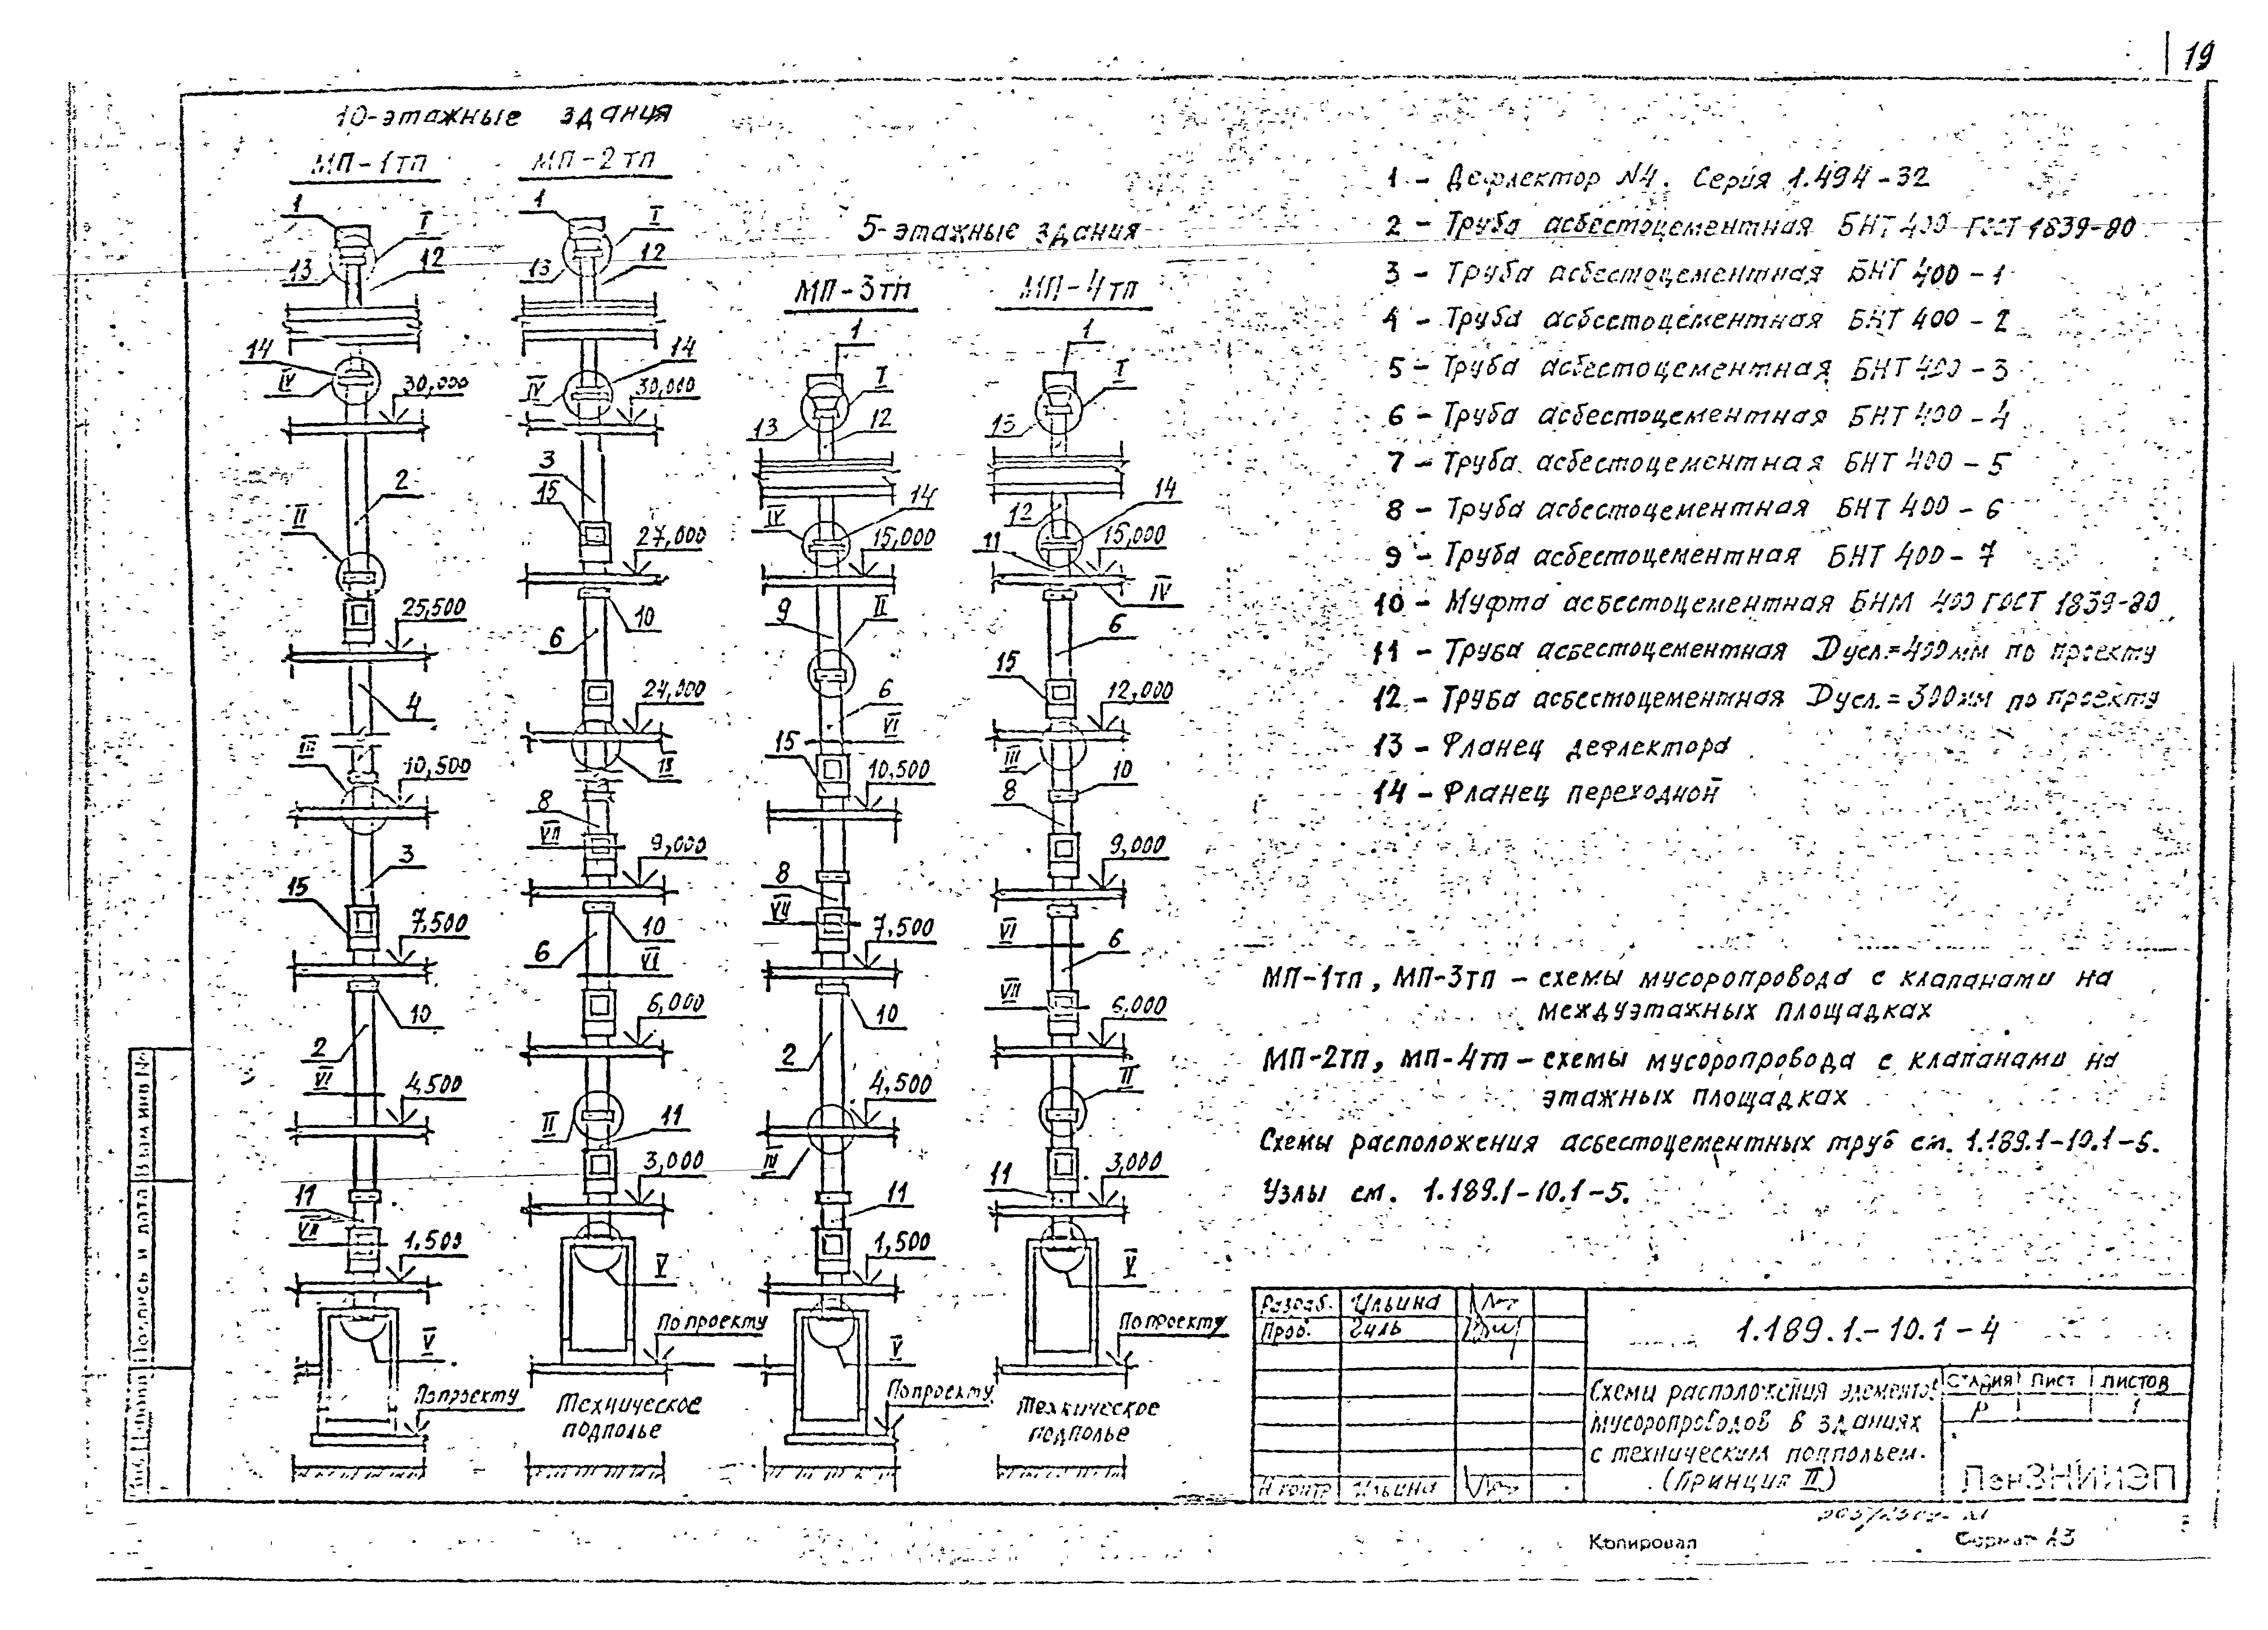 19
10-этажные здания
МП-1тп
МП-2тп
5-этажные здания
МП-3тп
МП-4тп
1
I
13
12
14
IV
30,000
2
II
25,500
4
III
10,500
3
15
7.500
10
2
VI
4,500
11
VII
1.500
V
По проекту
1
I
13
12
14
IV
30,000
3
15
27,000
10
6
24,000
8
VII
9,000
10
6
VI
6,000
II
11
3,000
V
По проекту
Техническое
подполье
1
I
13
12
14
IV
15,000
9
II
6
VI
15
10,500
8
VII
7.500
10
2
4,500
IV
11
1,500
V
По проекту
1
I
13
14
12
11
15,000
IV
6
15
12,000
III
10
8
9,000
VI
6
VII
6,000
II
11
3,000
V
По проекту
Техническое
подполье
1 - Дефлектор N4. Серия 1.494-32
2 - Труба асбестоцементная БНТ 400 ГОСТ 1839-80
3 - Труба асбестоцементная БНТ 400-1
4 - Труба асбестоцементная БНТ 400-2
5 - Труба асбестоцементная БНТ 400-3
6 - Труба асбестоцементная БНТ 400-4
7 - Труба асбестоцементная БНТ 400-5
8 - Труба асбестоцементная БНТ 400-6
9 - Труба асбестоцементная БНТ 400-7
10 - Муфта асбестоцементная БНМ 400 ГОСТ 1839-80
11 - Труба асбестоцементная Dусл.=400мм по проекту
12 - Труба асбестоцементная Dусл.=300мм по проекту
13 - Фланец дефлектора
14 - Фланец переходной
МП-1тп, МП-3тп - схемы мусоропровода с клапанами на
междуэтажных площадках
МП-2тп, МП-4тп - схемы мусоропровода с клапанами на
этажных площадках
Схемы расположения асбестоцементных труб см. 1.189.1-10.1-6.
Узлы см. 1.189.1-10.1-5.
Разраб. Ильина
Пров. Гиль
Н контр Ильина
1.189.1-10.1-4
Схемы расположения элементов
мусоропроводов в зданиях
с техническим подпольем.
(Принцип II)
Стадия Лист Листов
Р 1
ЛенЗНИИЭП
Копировал
Формат А3
Взам инв №
Подпись и дата